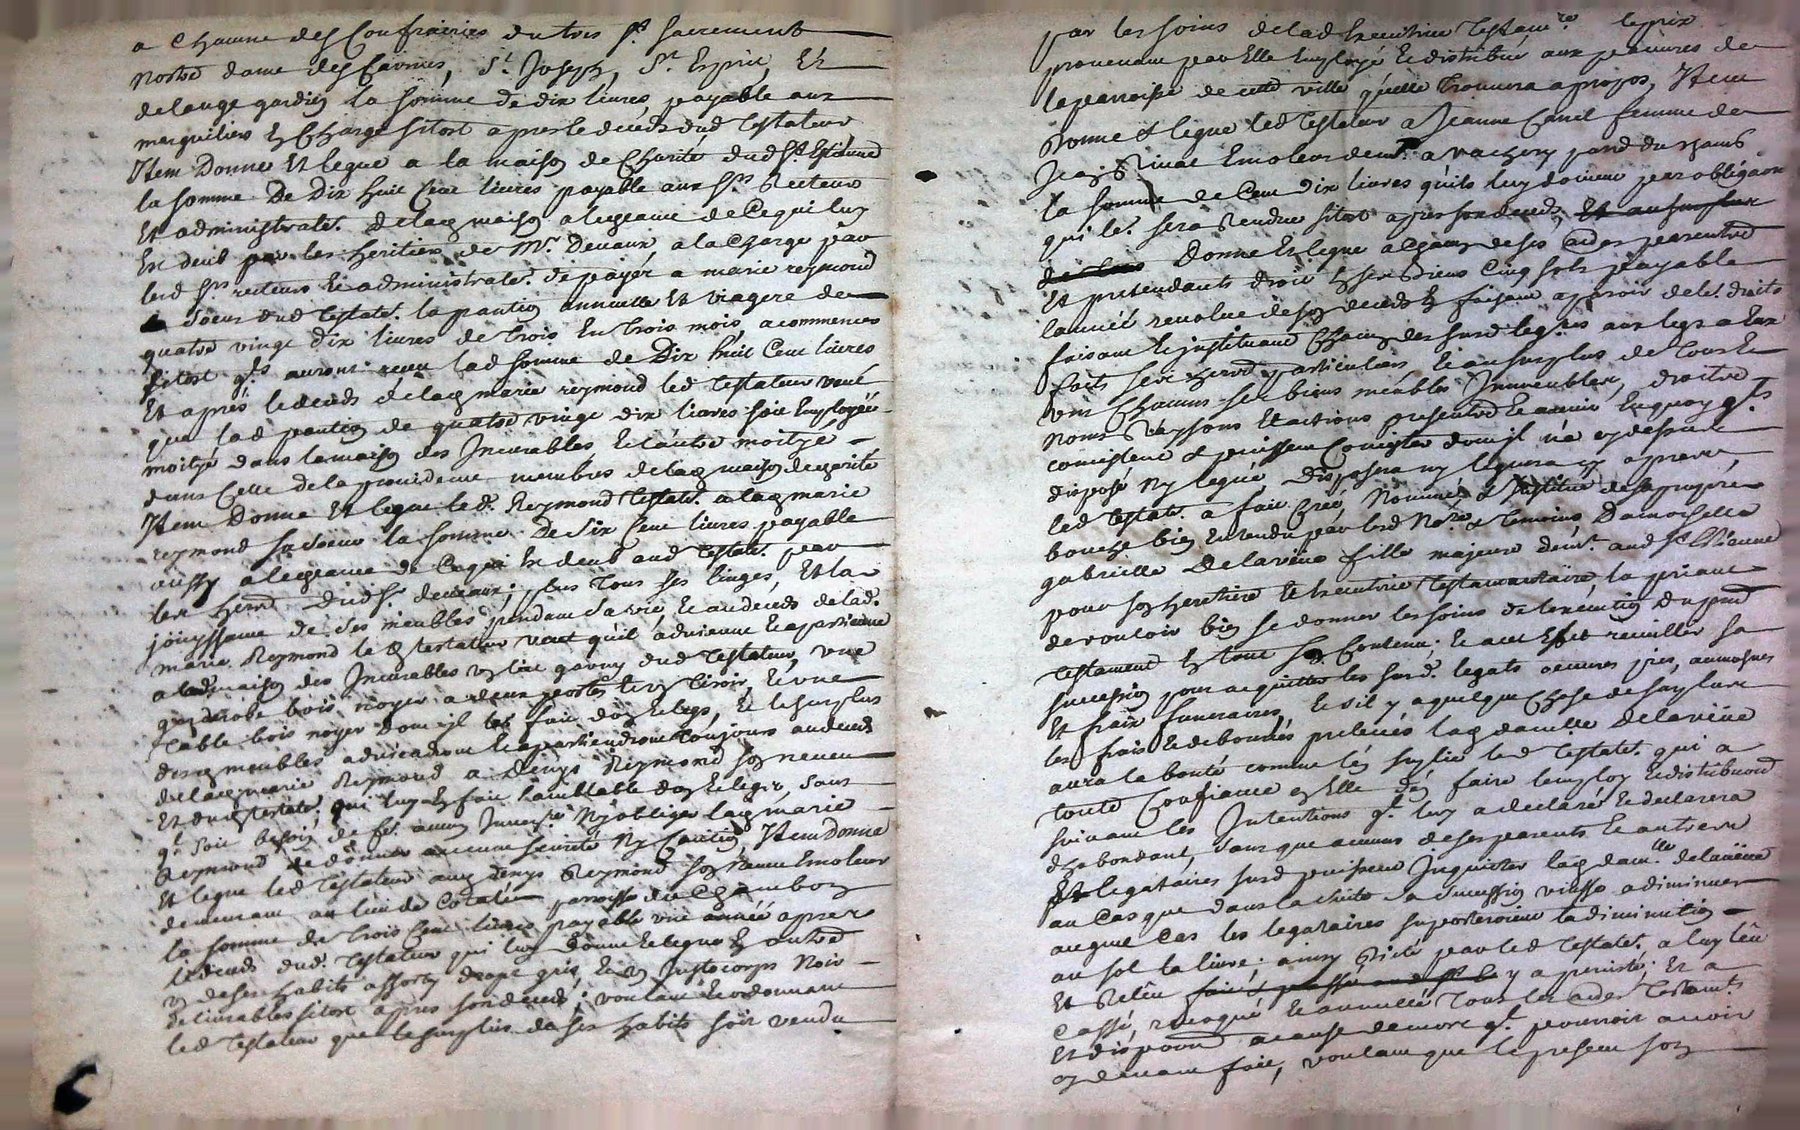 a Chacune des Confrairies du tres St. Sacrement
nostre dame des , St. Joseph, St. Esprit, Et
de lange gardien la somme de dix livres, payable aux
marguiliers en Charge sitost apres le deceds dud Testateur
Item Donne Et legue a la maison de Charité dud St. Estienne
la somme De Dix huit Cent livres payable aux Srs. Recteurs
Et administrate. de lad maison a lecheance de Ce qui luy
Est deub par les heritiers de Mr. Devaux a la Charge par
lesd Srs. recteurs Et administrate. de payer a marie reymond
soeur dud Testat. la pantion annuelle Et viagere de
quatre vingt dix livres de trois En trois mois, a commencer
sitost qls auront receu lad somme de Dix huit Cent livres
Et apres le deceds de lad marie reymond led Testateur veut
que lad pantion de quatre vingt dix livres soit Employée
moityé dans la maison des Incurables Et lautre moityé
dans Celle de la providence membres de lad maison de charité
Item Donne Et legue led. Reymond Testat. a lad marie
reymond sa soeur la somme De Six Cent livres payable
aussy a lecheance de Ce qui Est deub aud Testat. par
les hers dud Sr. devaux; plus tous ses linges, Et la
jouyssance de ses meubles pendant sa vie Et au deceds de lad.
marie Reymond le d testateur veut qu'il advienne Et apartienne
a lad maison des Incurables un lict garny dud Testateur, une
garderobe bois noyer a deux portes Et un tiroir, Et une
Table bois noyer dont il les fait don Et legs, Et le surplus
desd meubles adviendront Et apartiendront toujours au deceds
de lad marie Reymond a Denys Reymond son neveu
Et dud testate, qui luy En fait semblable don Et legs, sans
ql soit besoin de fe. aucun Invere. Ny obliger lad marie
Reymond de donner aucune seurété Ny Caution, Item Donne
Et legue led Testateur aud denys Reymond son Neveu Emoleur
demeurant au lieu de Cotatay parroisse du Chambon
la somme de trois Cent livres payable une année apres
le deceds dud. Testateur qui luy donne Et legue En outre
un de ses habits assorty drap gris, Et un Justecorps Noir
delivrables sitost apres son deceds; voulant Et ordonnant
led Testateur que le surplus de ses habits soit vendu
par les soins de lad Executrice Testamre. le prix
provenant par Elle Employé Et distribué aux pauvres de
la parroisse de cette ville qu'elle trouvera a propos, Item
Donne & legue led Testateur a Jeanne Canel femme de
Jean Emoleur demt. a
la somme de Cent dix livres qu'ils luy doivent par obligaon
qui le. sera rendue sitost apres son deceds, Et au surplus
Donne Et legue a chacun de ses autres parents
Et pretendants droit En ses Biens Cinq sols payable
lannée revolue de son deceds En faisant aparoir de le. droits
faisant Et instituant Chacun des susd legres aux legs a Eux
faits ses hers particuliers Et au surplus de tous Et
uns Chacuns ses biens meubles Immeubles, droits
noms Raysons Et actions presents Et avenir En quoy qls
consistent & puissent Consister dont il n'a cy dessus
disposé Ny legué, Disposera ny leguera cy apres,
led testat. a fait Creé, Nommé, & Institué de sa propre
bouche bien Entendu par led Nore. & temoins, Damoiselle
gabrielle Delavéüe fille majeure demt. aud St. Estienne
pour son heritiere Et Executrice Testamentaire, la priant
de vouloir bien se donner les soins de lexecution du pnt
testament En tout son Contenu; Et a cet Effet recuillir sa
succession pour acquitter les susd. legats oeuvres pies, aumosnes
Et fraix funeraires, Et s'il y a quelque Chose de surplus
les frais Et debourcés prelevés lad damlle. Delavéüe
aura la bonté comme l'en suplie led Testate. qui a
toute Confiance en Elle d'en faire lemploy Et distribuon
suivant les Intentions ql. luy a declaré Et declarera
d'habondant, sans que aucuns de ses parents Et autres
Et legataires susd puissent Inquieter lad damlle. delavéüe
au Cas que dans la suitte sa succession vinsse a diminuer
auquel Cas les legataires suporteroient la diminution
au sol la livre; ainsy Dicté par led Testate. a luy leu
Et Releu y a persisté; Et a
Cassé, revoqué Et annullé tous les autres Testamts.
Et dispons a cause de mort ql. pourroit avoir
cy devant fait, voulant que le present son